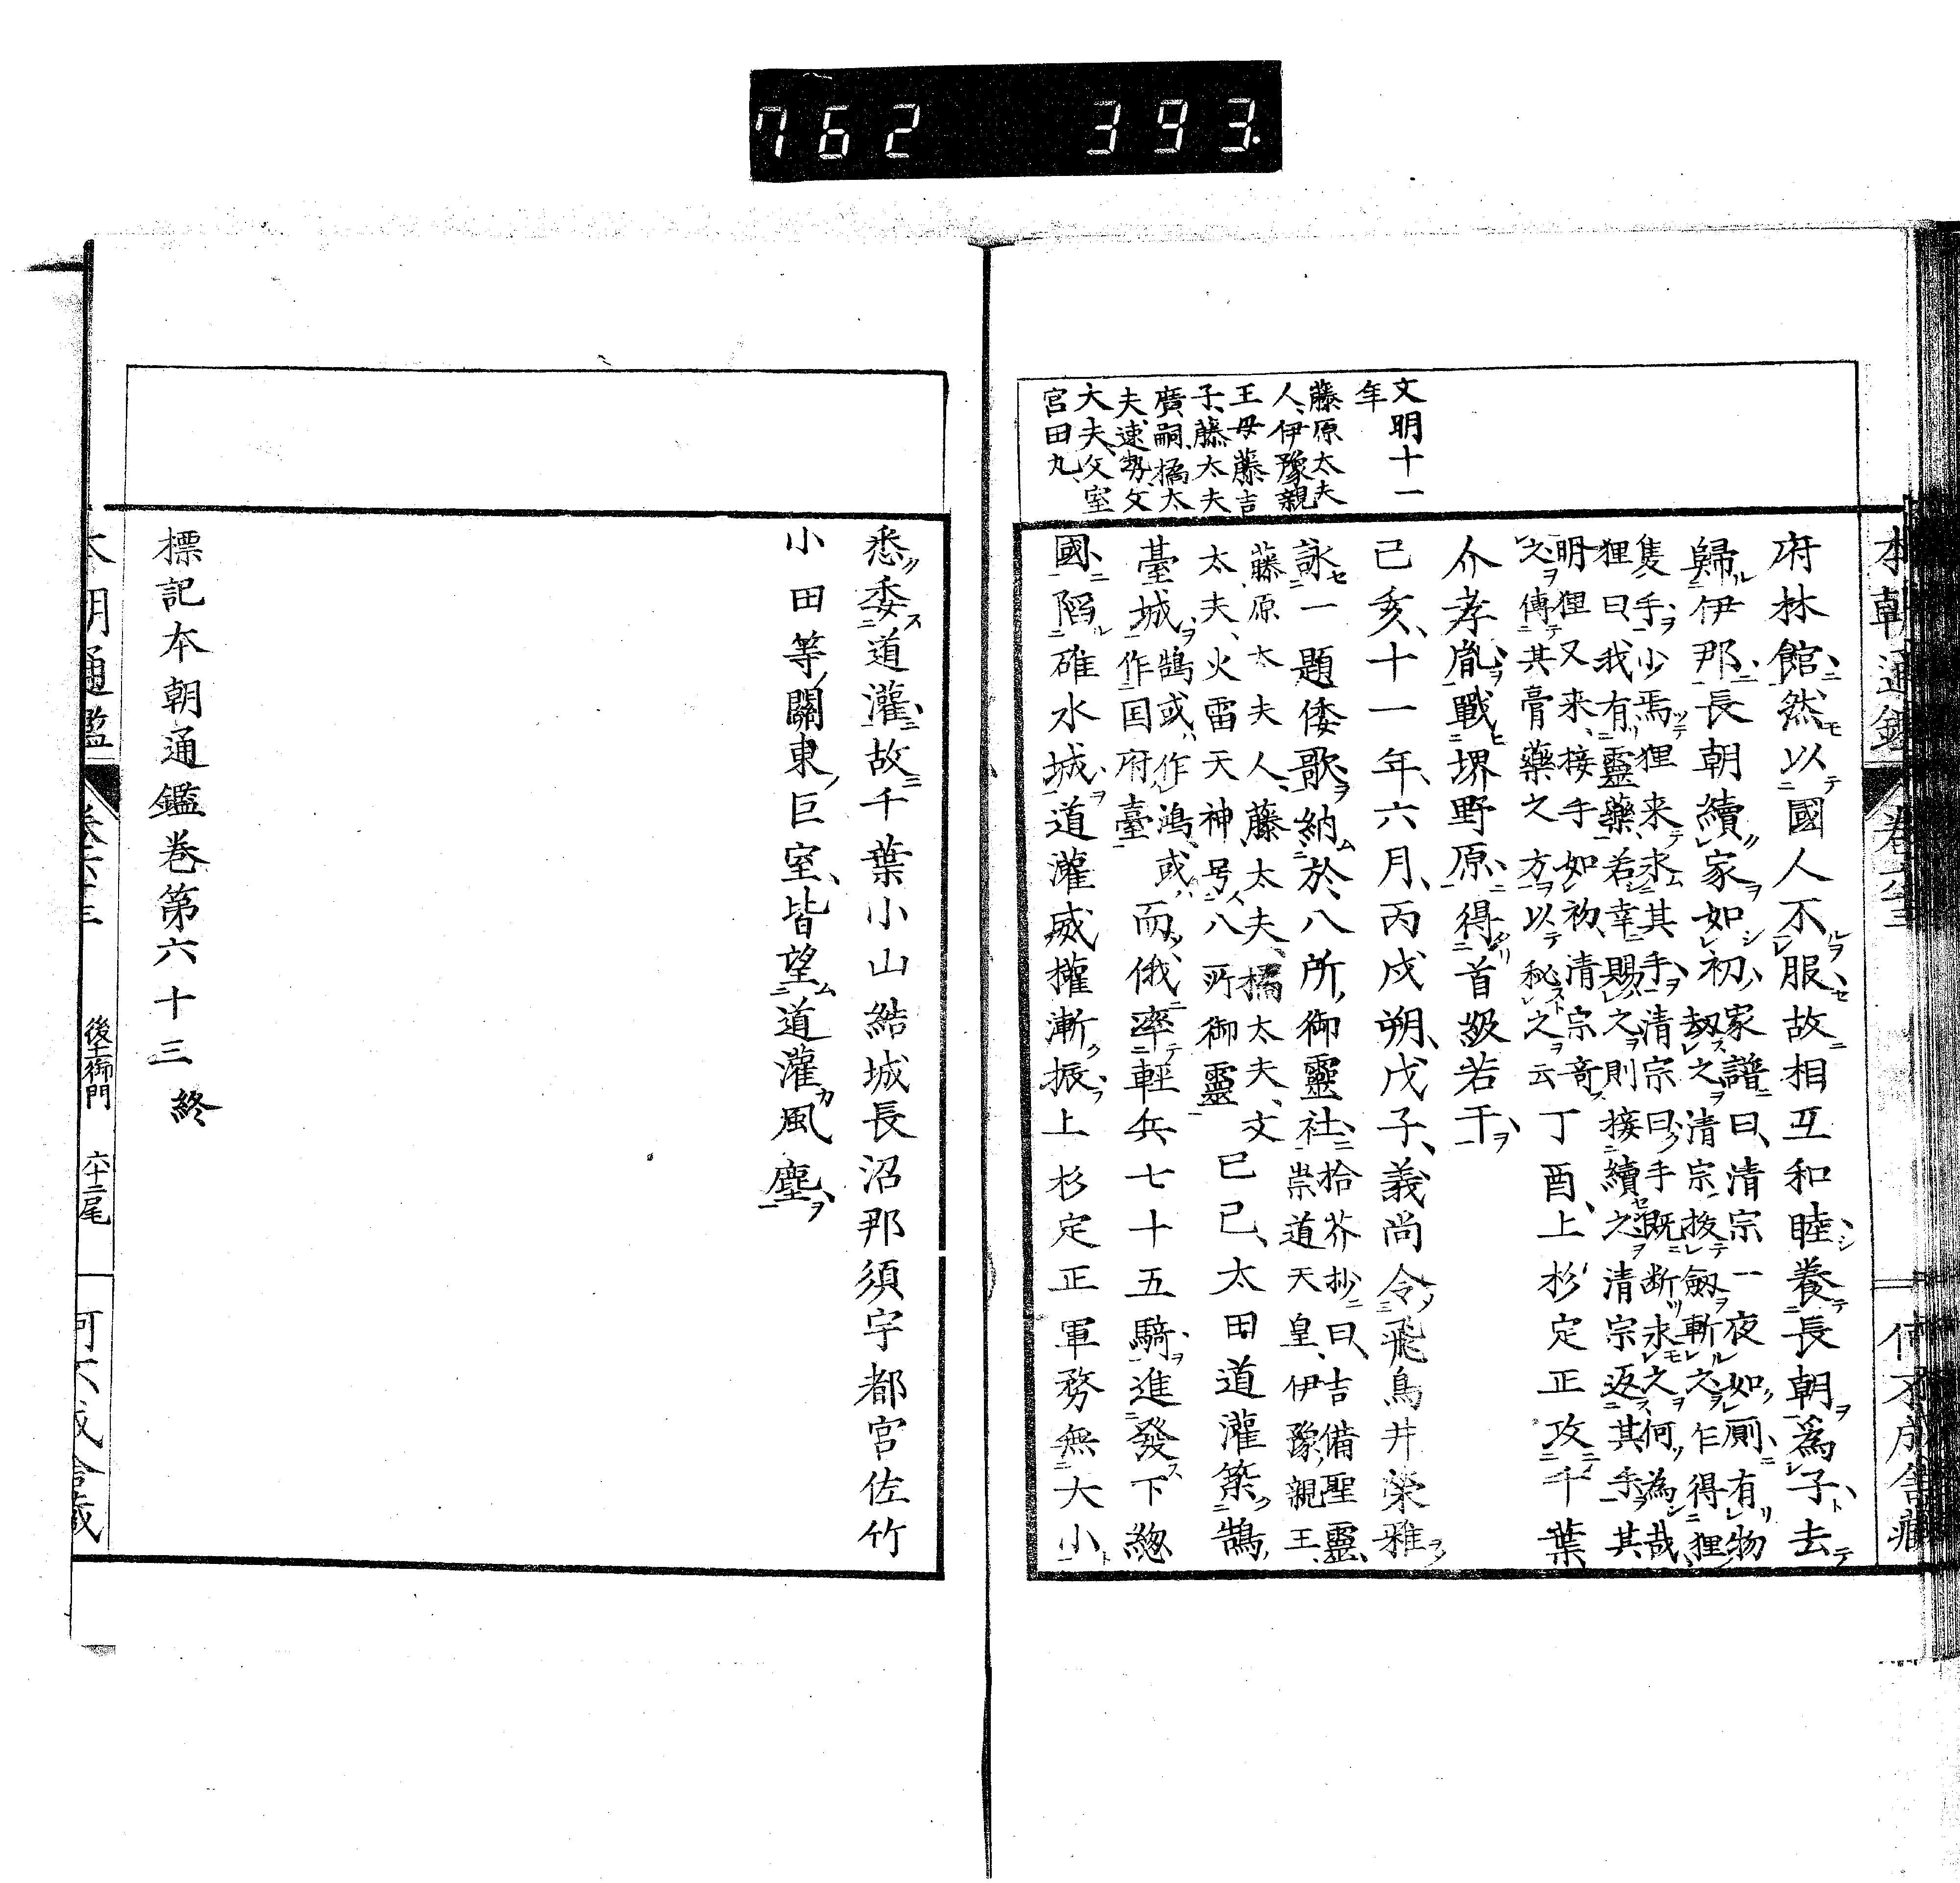 762 393
文明十一
年
藤原太夫
人、伊豫親
王母藤吉
子、藤太夫
廣嗣、橘太
夫速勢、文
大夫、父室
宮田丸、
府林館、然以國人不服故相互和睦養長朝為子去
歸伊那、長朝續家如初、
家譜曰、清宗一夜如厠有物
劫之清宗拔劔斬之乍得狸
隻手少焉狸来求其手清宗曰手既断求之何為哉、
狸曰、我有靈藥、若幸賜之則接續之清宗返其手其
明狸又来、接手如初、清宗竒
之傳其膏藥之方以秘之云
丁酉、上杉定正攻千葉
介孝胤戰堺野原、得首級若干、
己亥、十一年、六月、丙戌朔、戊子、義尚令飛鳥井栄雅
詠一題倭歌納於八所御靈社、
拾芥抄曰、吉備聖靈、
崇道天皇、伊豫親王、
藤原太夫人、藤太夫、橘太夫、文
太夫、火雷天神号八所御靈
己巳、太田道灌築鵠
臺城、
鵠或作鴻、或
作国府臺
而俄率軽兵七十五騎進發下緫
國陷碓水城道灌威權漸振上杉定正軍務無大小
悉委道灌、故千葉小山結城長沼那須宇都宮佐竹
小田等、關東巨室、皆望道灌風塵、
標記本朝通鑑巻第六十三 終
後土御門